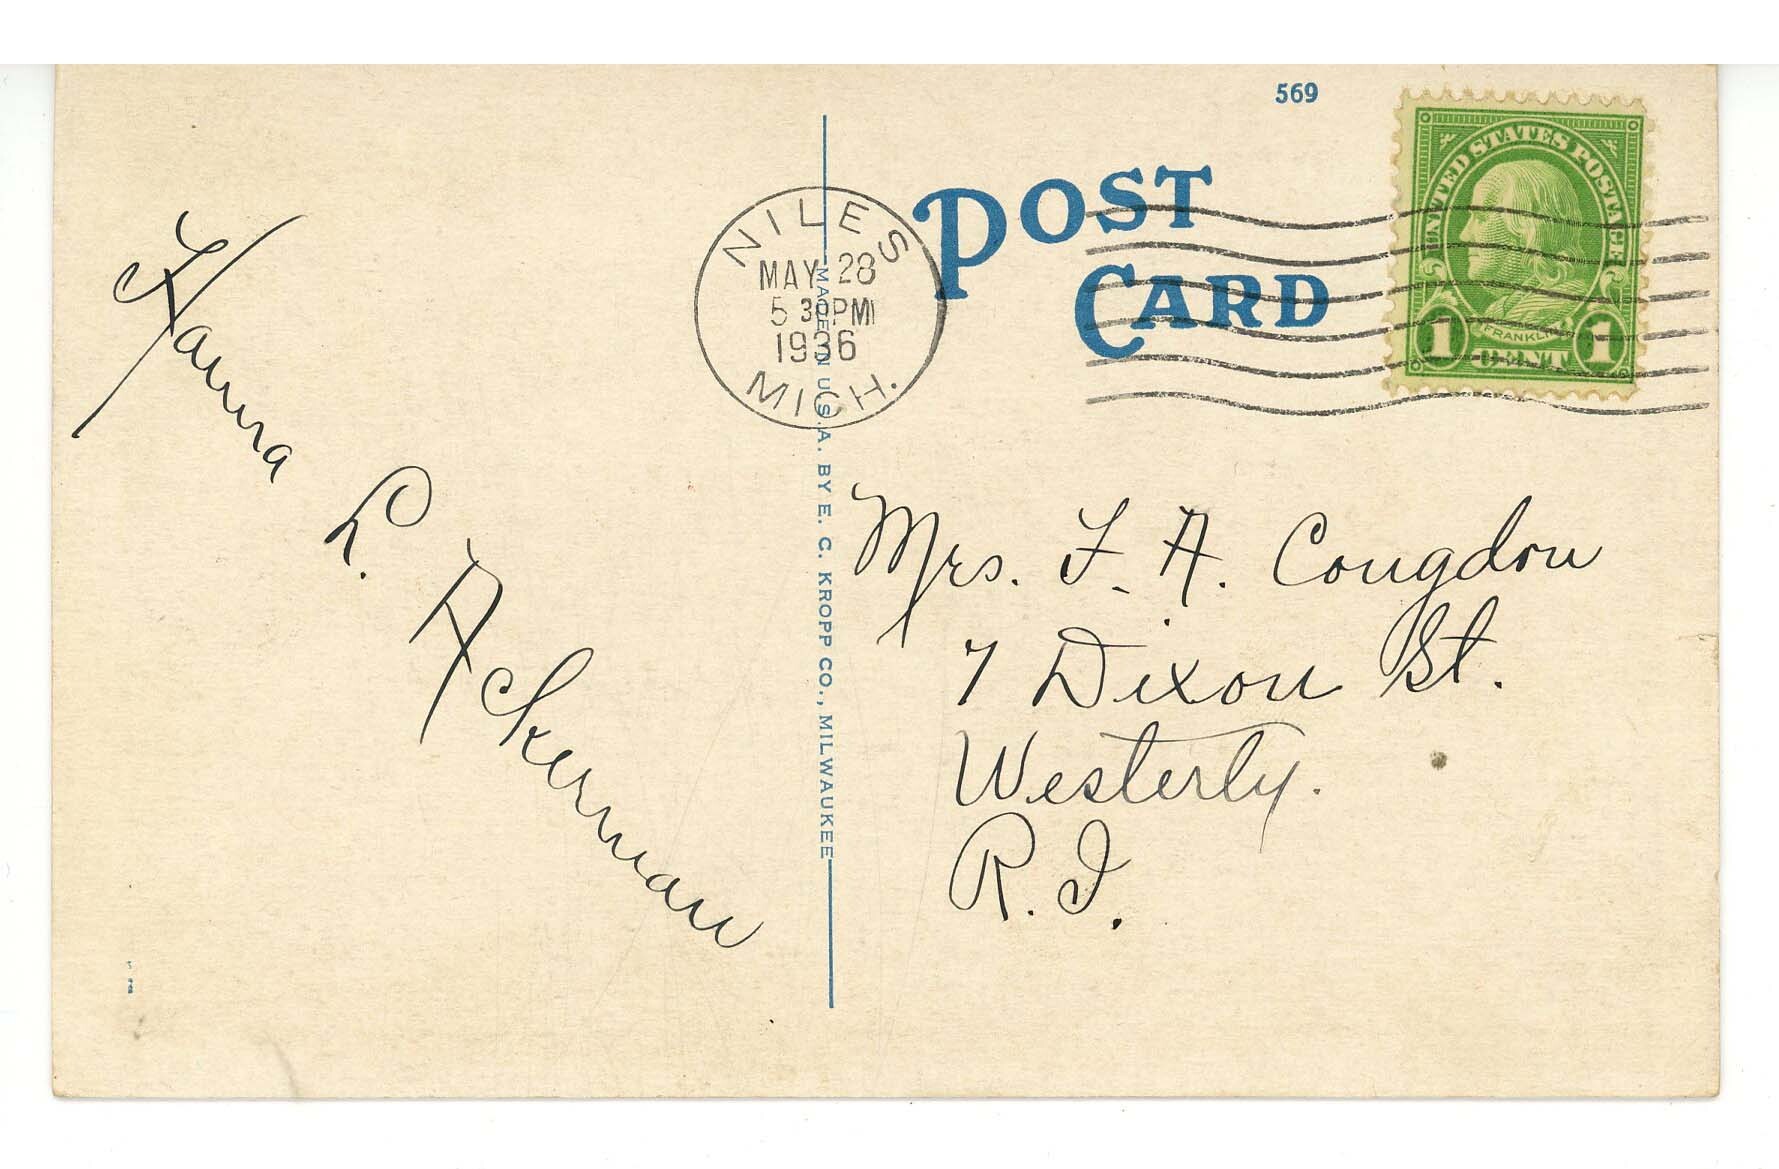 569
POST
CARD
UNITED STATES POSTAGE
FRANKLIN
1 CENT 1
NILES
MAY 28
5 30 PM
1936
MICH.
MADE IN U.S.A. BY E. C. KROPP CO., MILWAUKEE
L. Ackerman
Mrs. F. A. Congdon
7 Dixon St.
Westerly.
R. I.